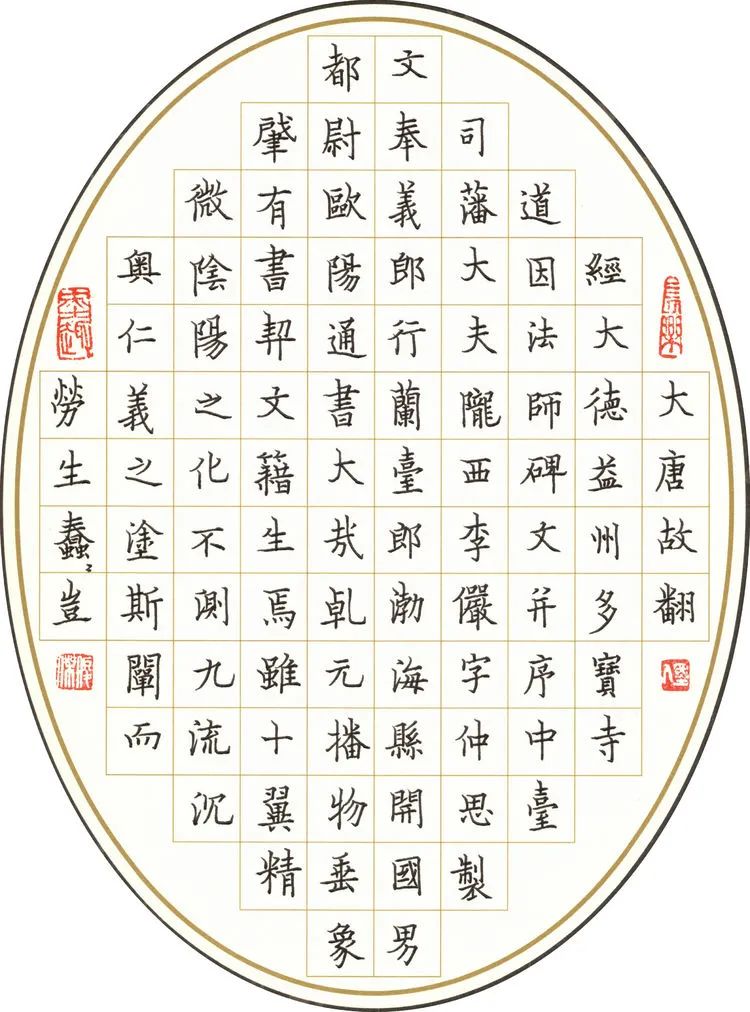 大唐故翻
經大德益州多寶寺
道因法師碑文并序中臺
司藩大夫隴西李儼字仲思製
文奉義郎行蘭臺郎渤海縣開國男
都尉歐陽通書大哉乹元播物垂象
肇有書契文籍生焉雖十翼精
微陰陽之化不測九流沉
奧仁義之塗斯闡而
勞生蠢〻豈
長樂